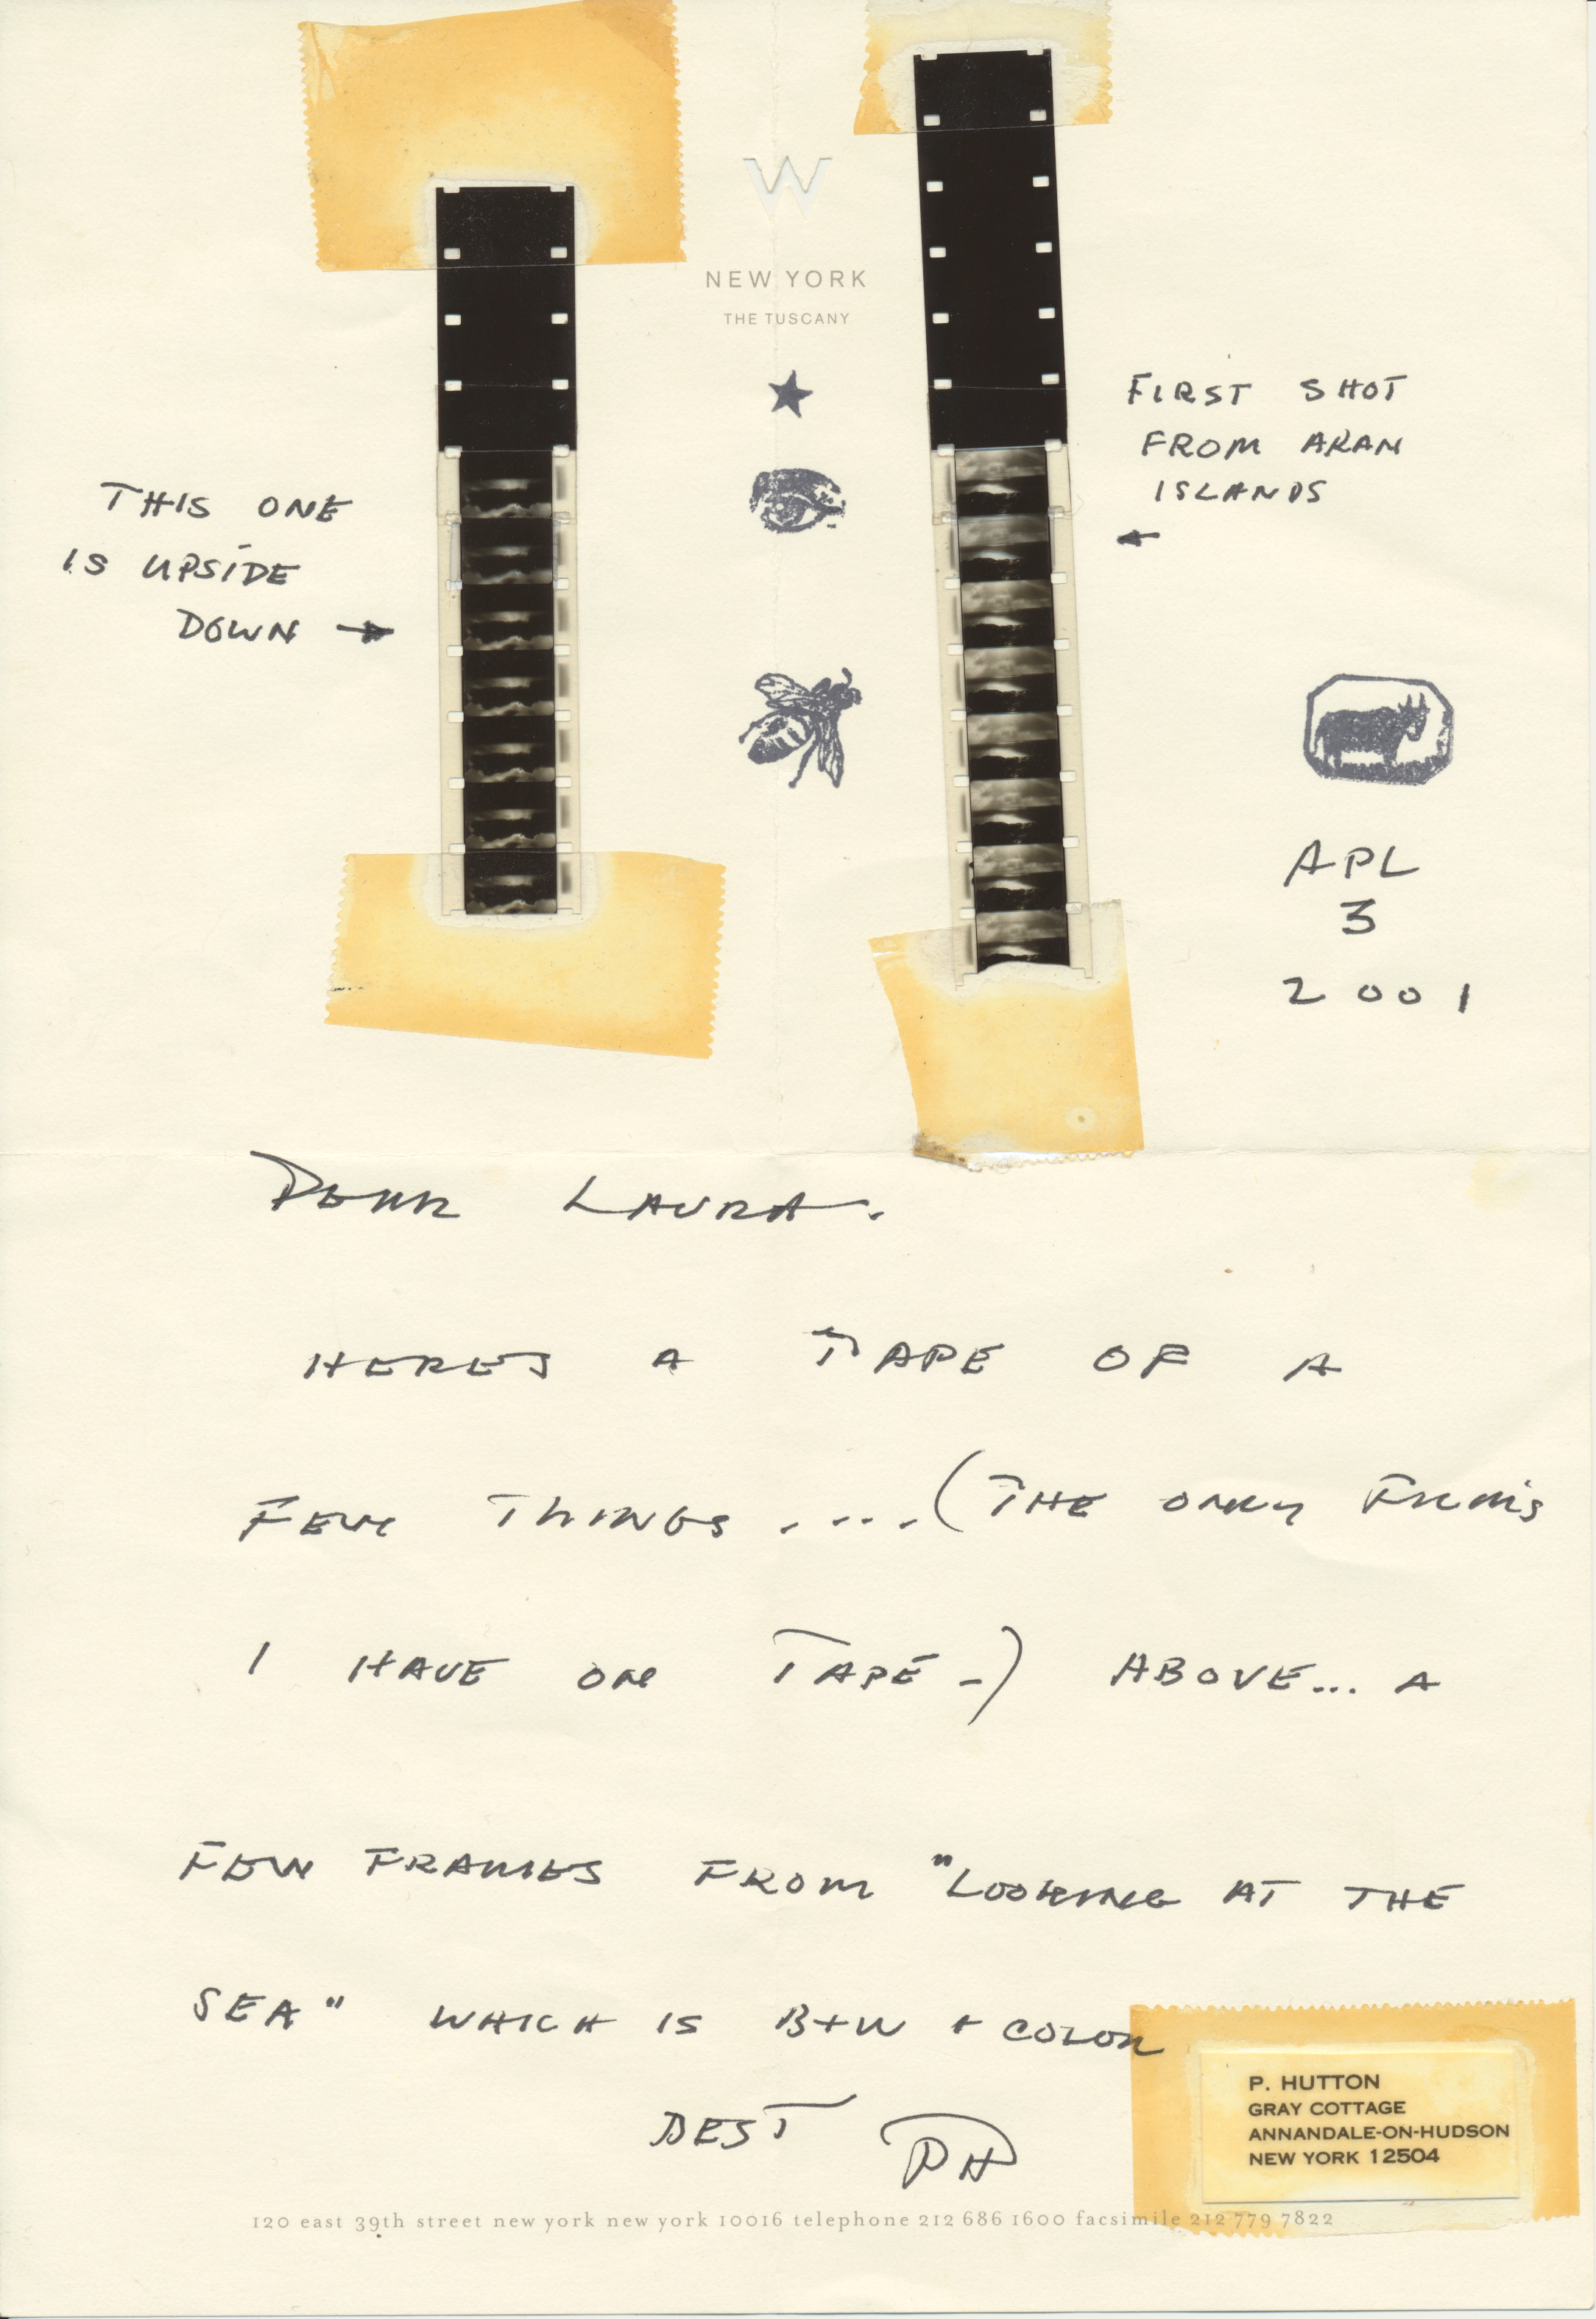 W
NEW YORK
THE TUSCANY
FIRST SHOT
FROM ARAN
ISLANDS
←
THIS ONE
IS UPSIDE
DOWN →
APL
3
2001
DEAR LAURA.
HERES A TAPE OF A
FEW THINGS ..... (THE ONLY FILMS
I HAVE ON TAPE -) ABOVE... A
FEW FRAMES FROM "LOOKING AT THE
SEA" WHICH IS B+W + COLOR
BEST PH
P. HUTTON
GRAY COTTAGE
ANNANDALE-ON-HUDSON
NEW YORK 12504
120 east 39th street new york new york 10016 telephone 212 686 1600 facsimile 212 779 7822